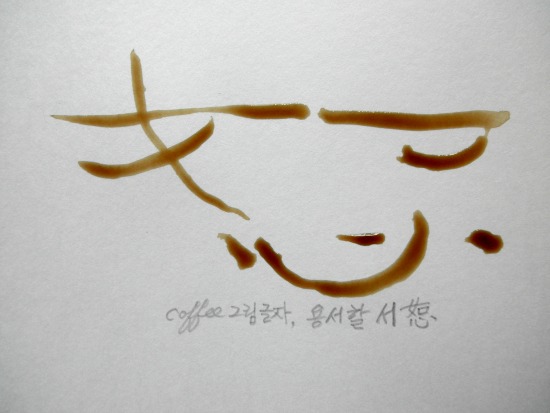 恕
coffee그림글자, 용서할 서 恕.